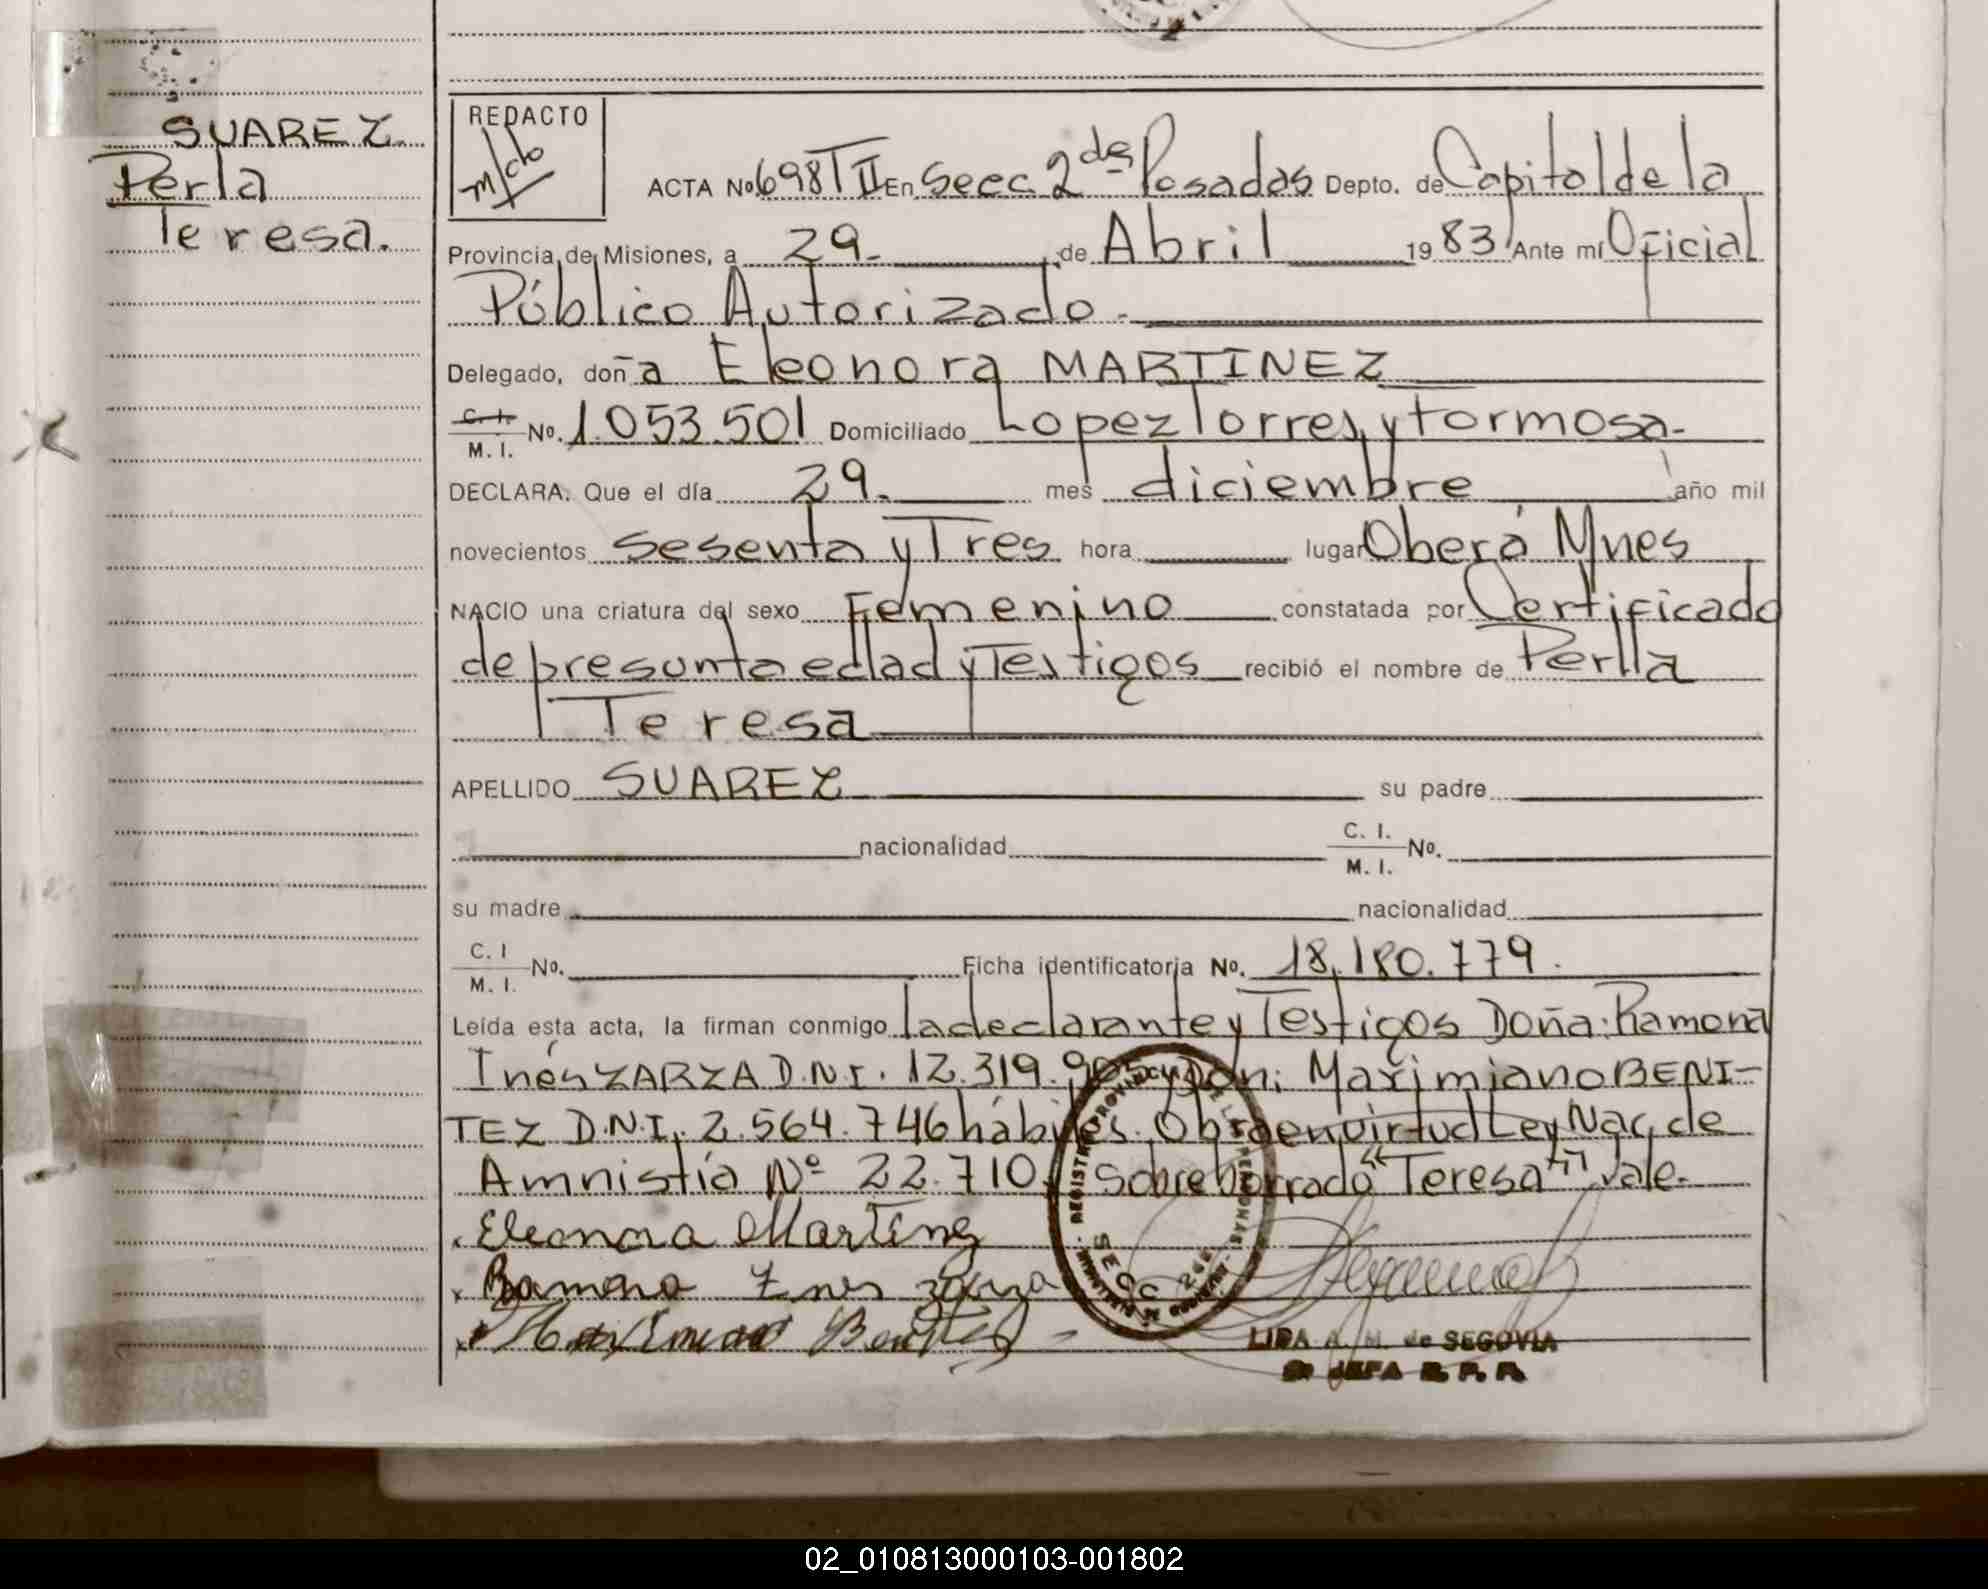 SUAREZ.
Perla
Teresa.
REDACTO
ACTA No. 698 T II En Secc. 2da Posadas Depto. de Capital de la
Provincia de Misiones, a 29. de Abril 1983 Ante mí Oficial
Público Autorizado.
Delegado, doña Eleonora MARTINEZ
C. I.
M. I.
No. 1.053.501 Domiciliado Lopez Torres y Formosa.
DECLARA: Que el día 29. mes diciembre año mil
novecientos sesenta y Tres hora lugar Oberá Mnes
NACIO una criatura del sexo Femenino constatada por Certificado
de presunta edad y Testigos recibió el nombre de Perla
Teresa
APELLIDO SUAREZ su padre
nacionalidad C. I.
M. I. No.
su madre nacionalidad
C. I
M. I. No. Ficha identificatoria No. 18.180.779.
Leída esta acta, la firman conmigo la declarante y Testigos Doña: Ramona
Inés ZARZA D.N.I. 12.319.905 y Don: Maximiano BENI-
TEZ D.N.I. 2.564.746 hábiles. Obra en virtud Ley Nac. de
Amnistía Nº 22.710. Sobre borrado "Teresa" vale.
Eleonora Martinez
Ramona Ines Zarza
Maximiano Benitez
LIDA A. M. de SEGOVIA
JEFA R. P. P.
02_010813000103-001802